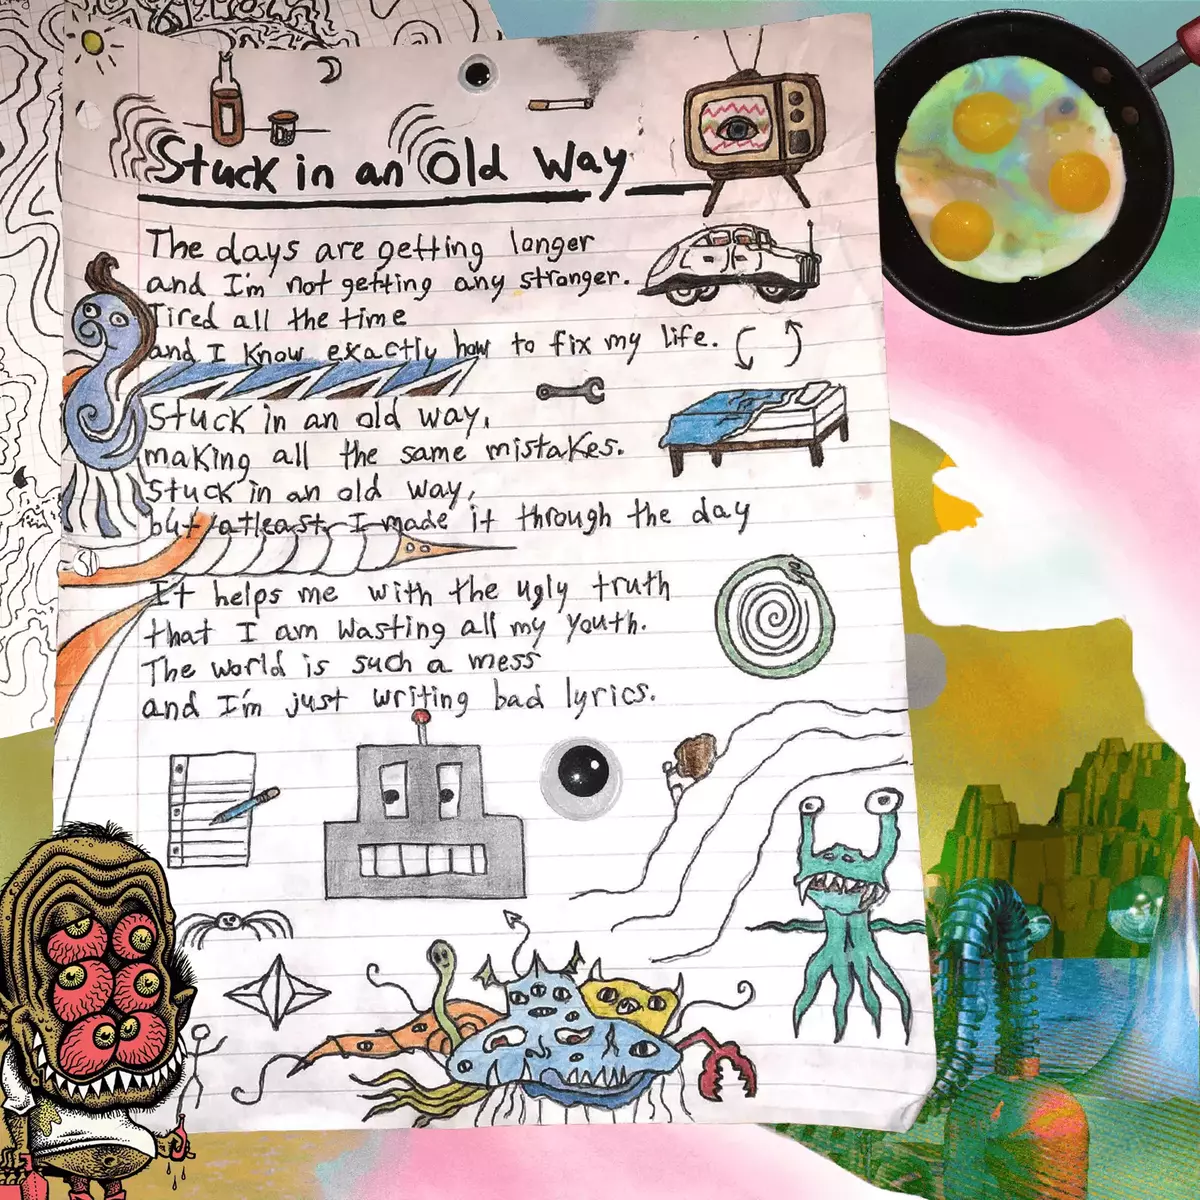 Stuck in an Old Way
The days are getting longer
and I'm not getting any stronger.
Tired all the time
and I know exactly how to fix my life.
Stuck in an old way,
making all the same mistakes.
Stuck in an old way,
but atleast I made it through the day
It helps me with the ugly truth
that I am wasting all my youth.
The world is such a mess
and I'm just writing bad lyrics.